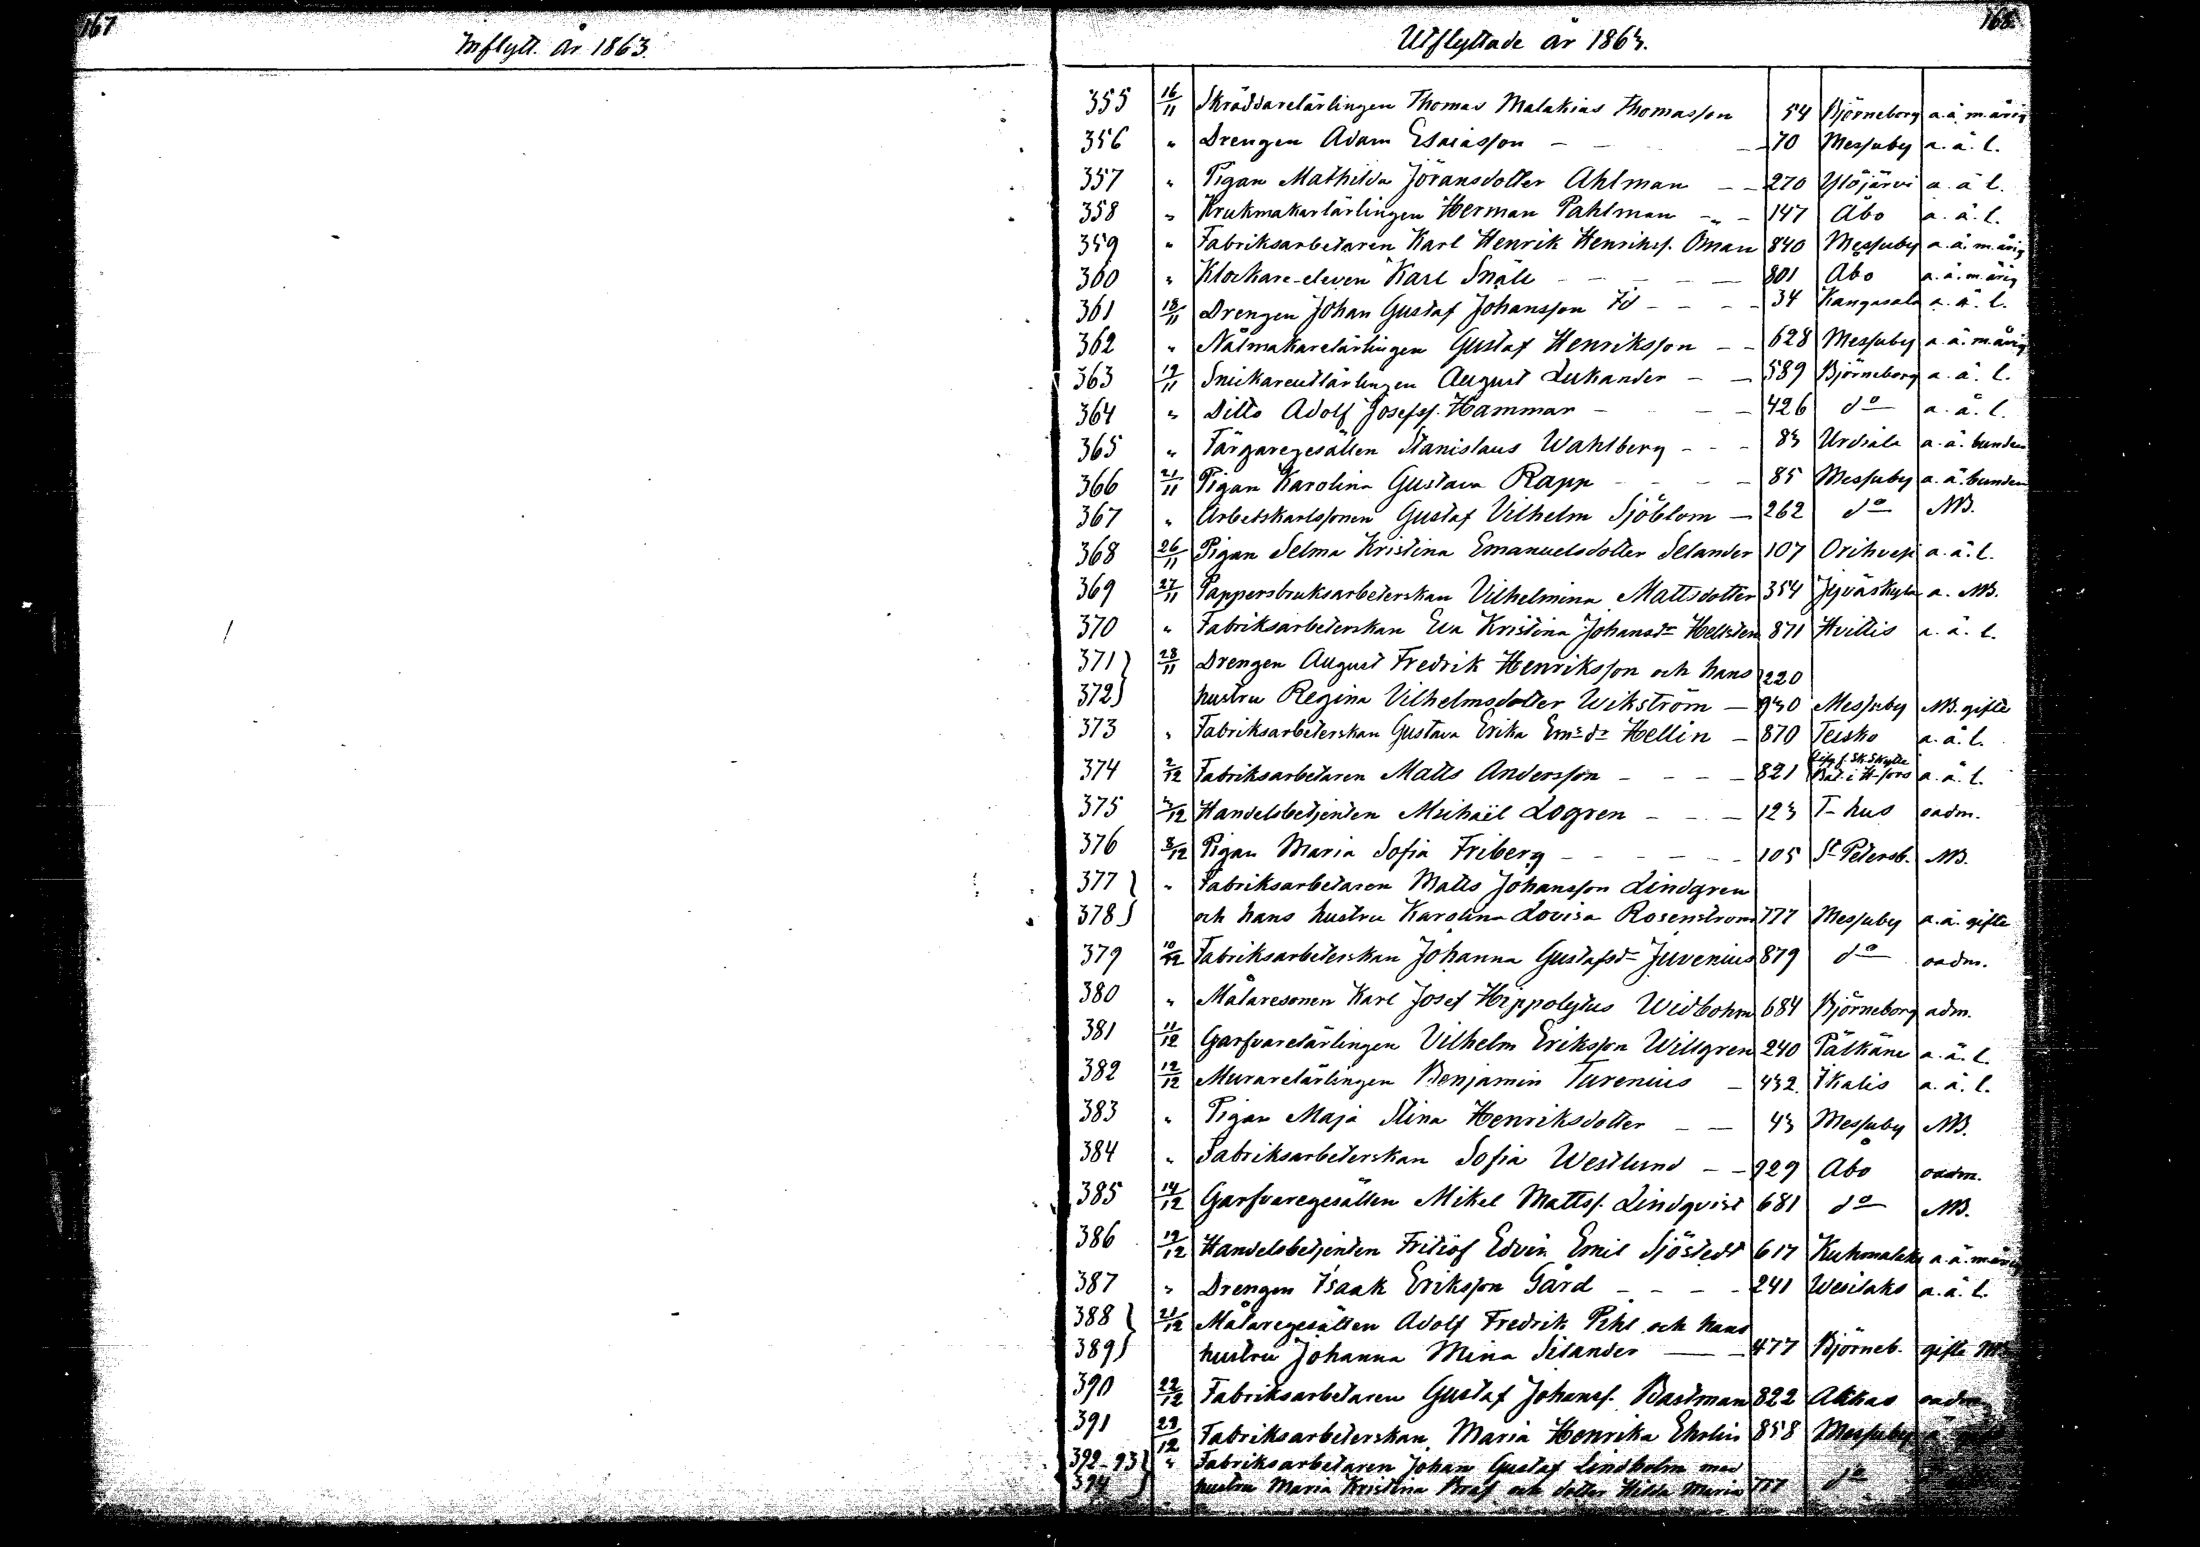 167
Inflytt. år 1863.
Utflyttade år 1863.
168.
355 16/11 Skräddarelärlingen Thomas Malakias Thomasson 54 Björneborg a.ä. m.årig
356 " Drengen Adam Esaiasson — — 70 Messuby a.ä.l.
357 " Pigan Mathilda Jöransdotter Ahlman — — 270 Ylöjärvi a.ä.l.
358 " Krukmakarlärlingen Herman Pahlman — — 147 Åbo a.ä.l.
359 " Fabriksarbetaren Karl Henrik Henrikss. Öman 840 Messuby a.ä. m.årig
360 " Klockare-eleven Karl Snäll — — 801 Åbo a.ä. m.årig
361 18/11 Drengen Johan Gustaf Johansson Id — — 34 Kangasala a.ä.l.
362 " Nålmakarelärlingen Gustaf Henriksson — — 628 Messuby a.ä. m.årig
363 19/11 Snickareutlärlingen August Lukander — — 589 Björneborg a.ä.l.
364 " Ditto Adolf Josefss. Hammar — — 426 do a.ä.l.
365 " Färgaregesällen Stanislaus Wahlberg — — 83 Urdiala a.ä. bunden
366 21/11 Pigan Karolina Gustava Rapp — — 85 Messuby a.ä. bunden
367 " Arbetskarlssonen Gustaf Vilhelm Sjöblom — 262 do NB.
368 26/11 Pigan Selma Kristina Emanuelsdotter Selander 107 Orihvesi a.ä.l.
369 27/11 Pappersbruksarbeterskan Vilhelmina Mattsdotter 354 Jyväskyla a. NB.
370 " Fabriksarbeterskan Eva Kristina Johansdr Hellsten 871 Hvittis a.ä.l.
371 } 28/11 Drengen August Fredrik Henriksson och hans 220
372 } hustru Regina Vilhelmsdotter Wikström — 930 Messuby NB. gifte
373 " Fabriksarbeterskan Gustava Erika Emsdr Hellin — 870 Teisko a.ä.l.
374 2/12 Fabriksarbetaren Matts Andersson — — 821 f. Sk. Skytte Bat. i H-fors a.ä.l.
375 3/12 Handelsbetjenten Michail Logren — — 123 T-hus oadm.
376 8/12 Pigan Maria Sofia Friberg — — 105 St Petersb. NB.
377 } " Fabriksarbetaren Matts Johansson Lindgren
378 } och hans hustru Karolina Lovisa Rosenstrom 777 Messuby a.ä. gifte
379 10/12 Fabriksarbeterskan Johanna Gustafsdr Juvenius 879 do oadm.
380 " Målaresonen Karl Josef Hippolytus Widbohm 684 Björneborg adm.
381 11/12 Garfvarelärlingen Vilhelm Eriksson Willgren 240 Pälkäne a.ä.l.
382 12/12 Murarelärlingen Benjamin Turenius — 432 Ikalis a.ä.l.
383 " Pigan Maja Stina Henriksdotter — — 43 Messuby NB.
384 " Fabriksarbeterskan Sofia Westlund — — 929 Åbo oadm.
385 14/12 Garfvaregesällen Mikel Mattss. Lindqvist 681 do NB.
386 19/12 Handelsbetjenten Fritiof Edvin Emil Sjöstedt 617 Kuhmalaks a.ä. m.årig
387 " Drengen Isaak Eriksson Gård — — 241 Wesilaks a.ä.l.
388 } 21/12 Målaregesällen Adolf Fredrik Pihl och hans
389 } hustru Johanna Mina Selander — — 477 Björneb. gifte NB
390 22/12 Fabriksarbetaren Gustaf Johanss. Bastman 822 Akkas oadm
391 23/12 Fabriksarbeterskan Maria Henrika Ehrlin 858 Messuby
392-93 } " Fabriksarbetaren Johan Gustaf Lindholm med
394 } hustru Maria Kristina Graf och dotter Hilda Maria 777 do